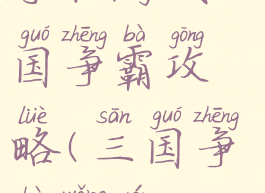 guó zhēng bà gōng
国争霸攻
lüè sān guó zhēng
略(三国争